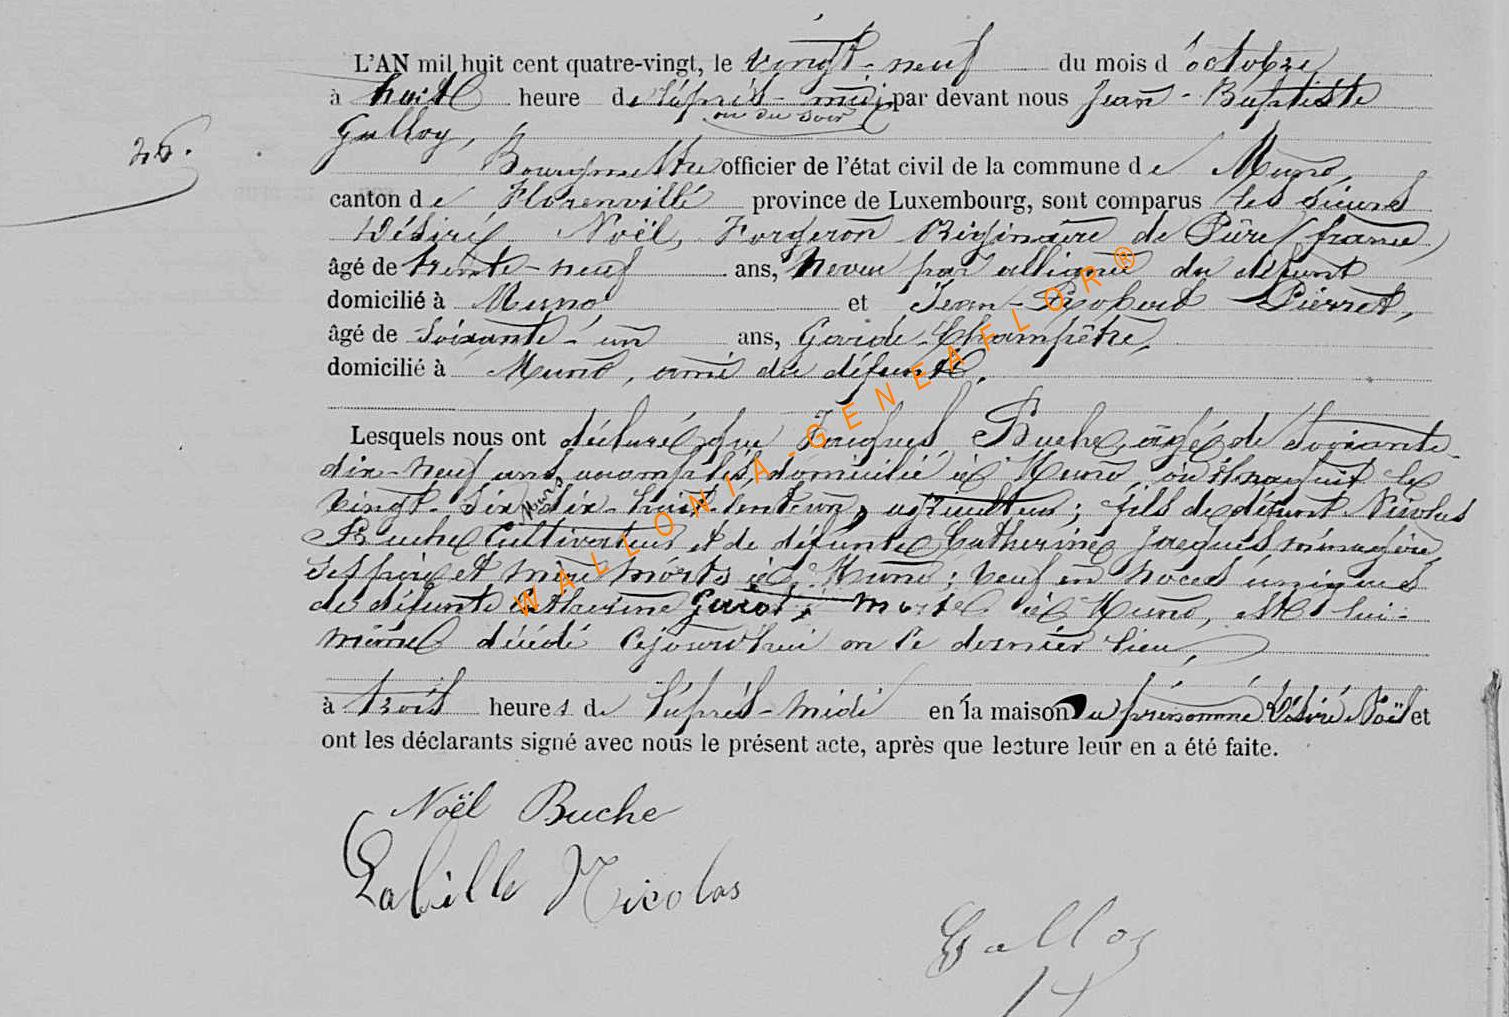 L'AN mil huit cent quatre-vingt, le vingt-neuf du mois d'octobre
à huit heure de l'après-midi par devant nous Jean-Baptiste
ou du soir
Galloy,
26.
Bourgmestre officier de l'état civil de la commune de Muno,
canton de Florenville province de Luxembourg, sont comparus les sieurs
Désiré Noël, Forgeron Originaire de Pure (france)
âgé de trente-neuf ans, Neveu par alliance du défunt
domicilié à Muno et Jean-Robert Pierret,
âgé de soixante-un ans, Garde-Champêtre,
domicilié à Muno, ami du défunt.
Lesquels nous ont déclaré que Jacques Buche, âgé de soixante-
dix-neuf ans accomplis, domicilié à Muno, où il naquit le
vingt-six Mars dix-huit-cent-un, agriculteur; fils de défunt Nicolas
Buche Cultivateur et de défunte Catherine Jacques, ménagère,
ses père et mère morts à Muno; veuf en noces uniques
de défunte Catherine morte à Muno, est lui-
même décédé cejourd'hui en ce dernier lieu,
à trois heures de l'après-midi en la maison du prénommé Désiré Noël et
ont les déclarants signé avec nous le présent acte, après que lecture leur en a été faite.
Noël Buche
Labille Nicolas
Galloy
WALLONIA-GENEAFLOR®